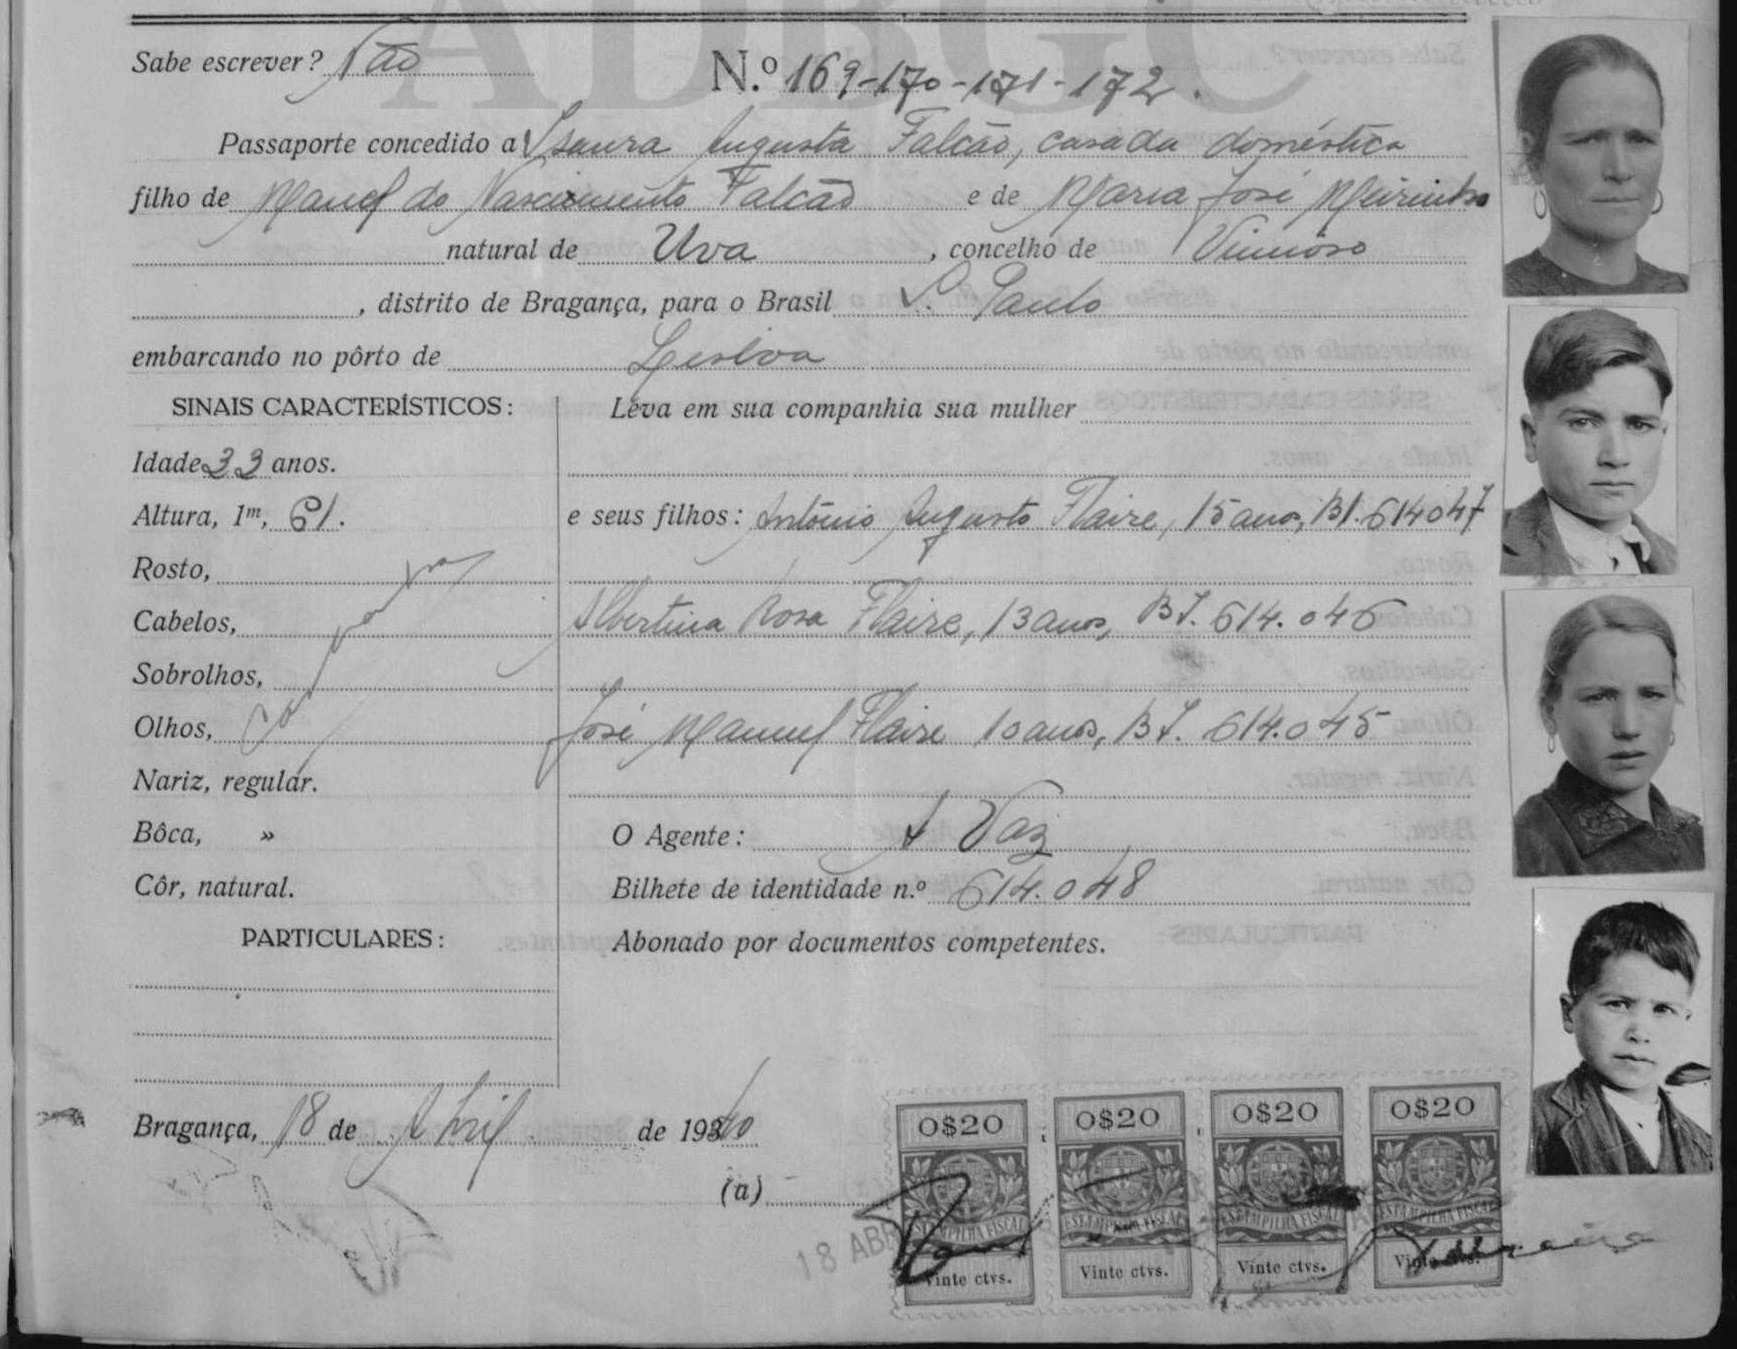 ADBGC
Sabe escrever? Não
N.º 169-170-171-172.
Passaporte concedido a Isaura Augusta Falcão, casada doméstica
filho de Manuel do Nascimento Falcão e de Maria José Meirinho
natural de Uva, concelho de Vimioso
, distrito de Bragança, para o Brasil S. Paulo
embarcando no pôrto de Lisboa
SINAIS CARACTERÍSTICOS:
Léva em sua companhia sua mulher
Idade 33 anos.
Altura, 1m, 61.
e seus filhos: António Augusto Flaire, 15 anos, BI. 614047
Rosto,
Cabelos,
Albertina Rosa Flaire, 13 anos, BI. 614.046
Sobrolhos,
Olhos,
José Manuel Flaire 10 anos, BI. 614.045
Nariz, regular.
Bôca, »
O Agente: A Vaz
Côr, natural.
Bilhete de identidade n.º 614.048
PARTICULARES:
Abonado por documentos competentes.
Bragança, 18 de Abril de 1940
(a)
18 ABR
0$20 0$20 0$20 0$20
ESTAMPILHA FISCAL ESTAMPILHA FISCAL ESTAMPILHA FISCAL ESTAMPILHA FISCAL
Vinte ctvs. Vinte ctvs. Vinte ctvs. Vinte ctvs.